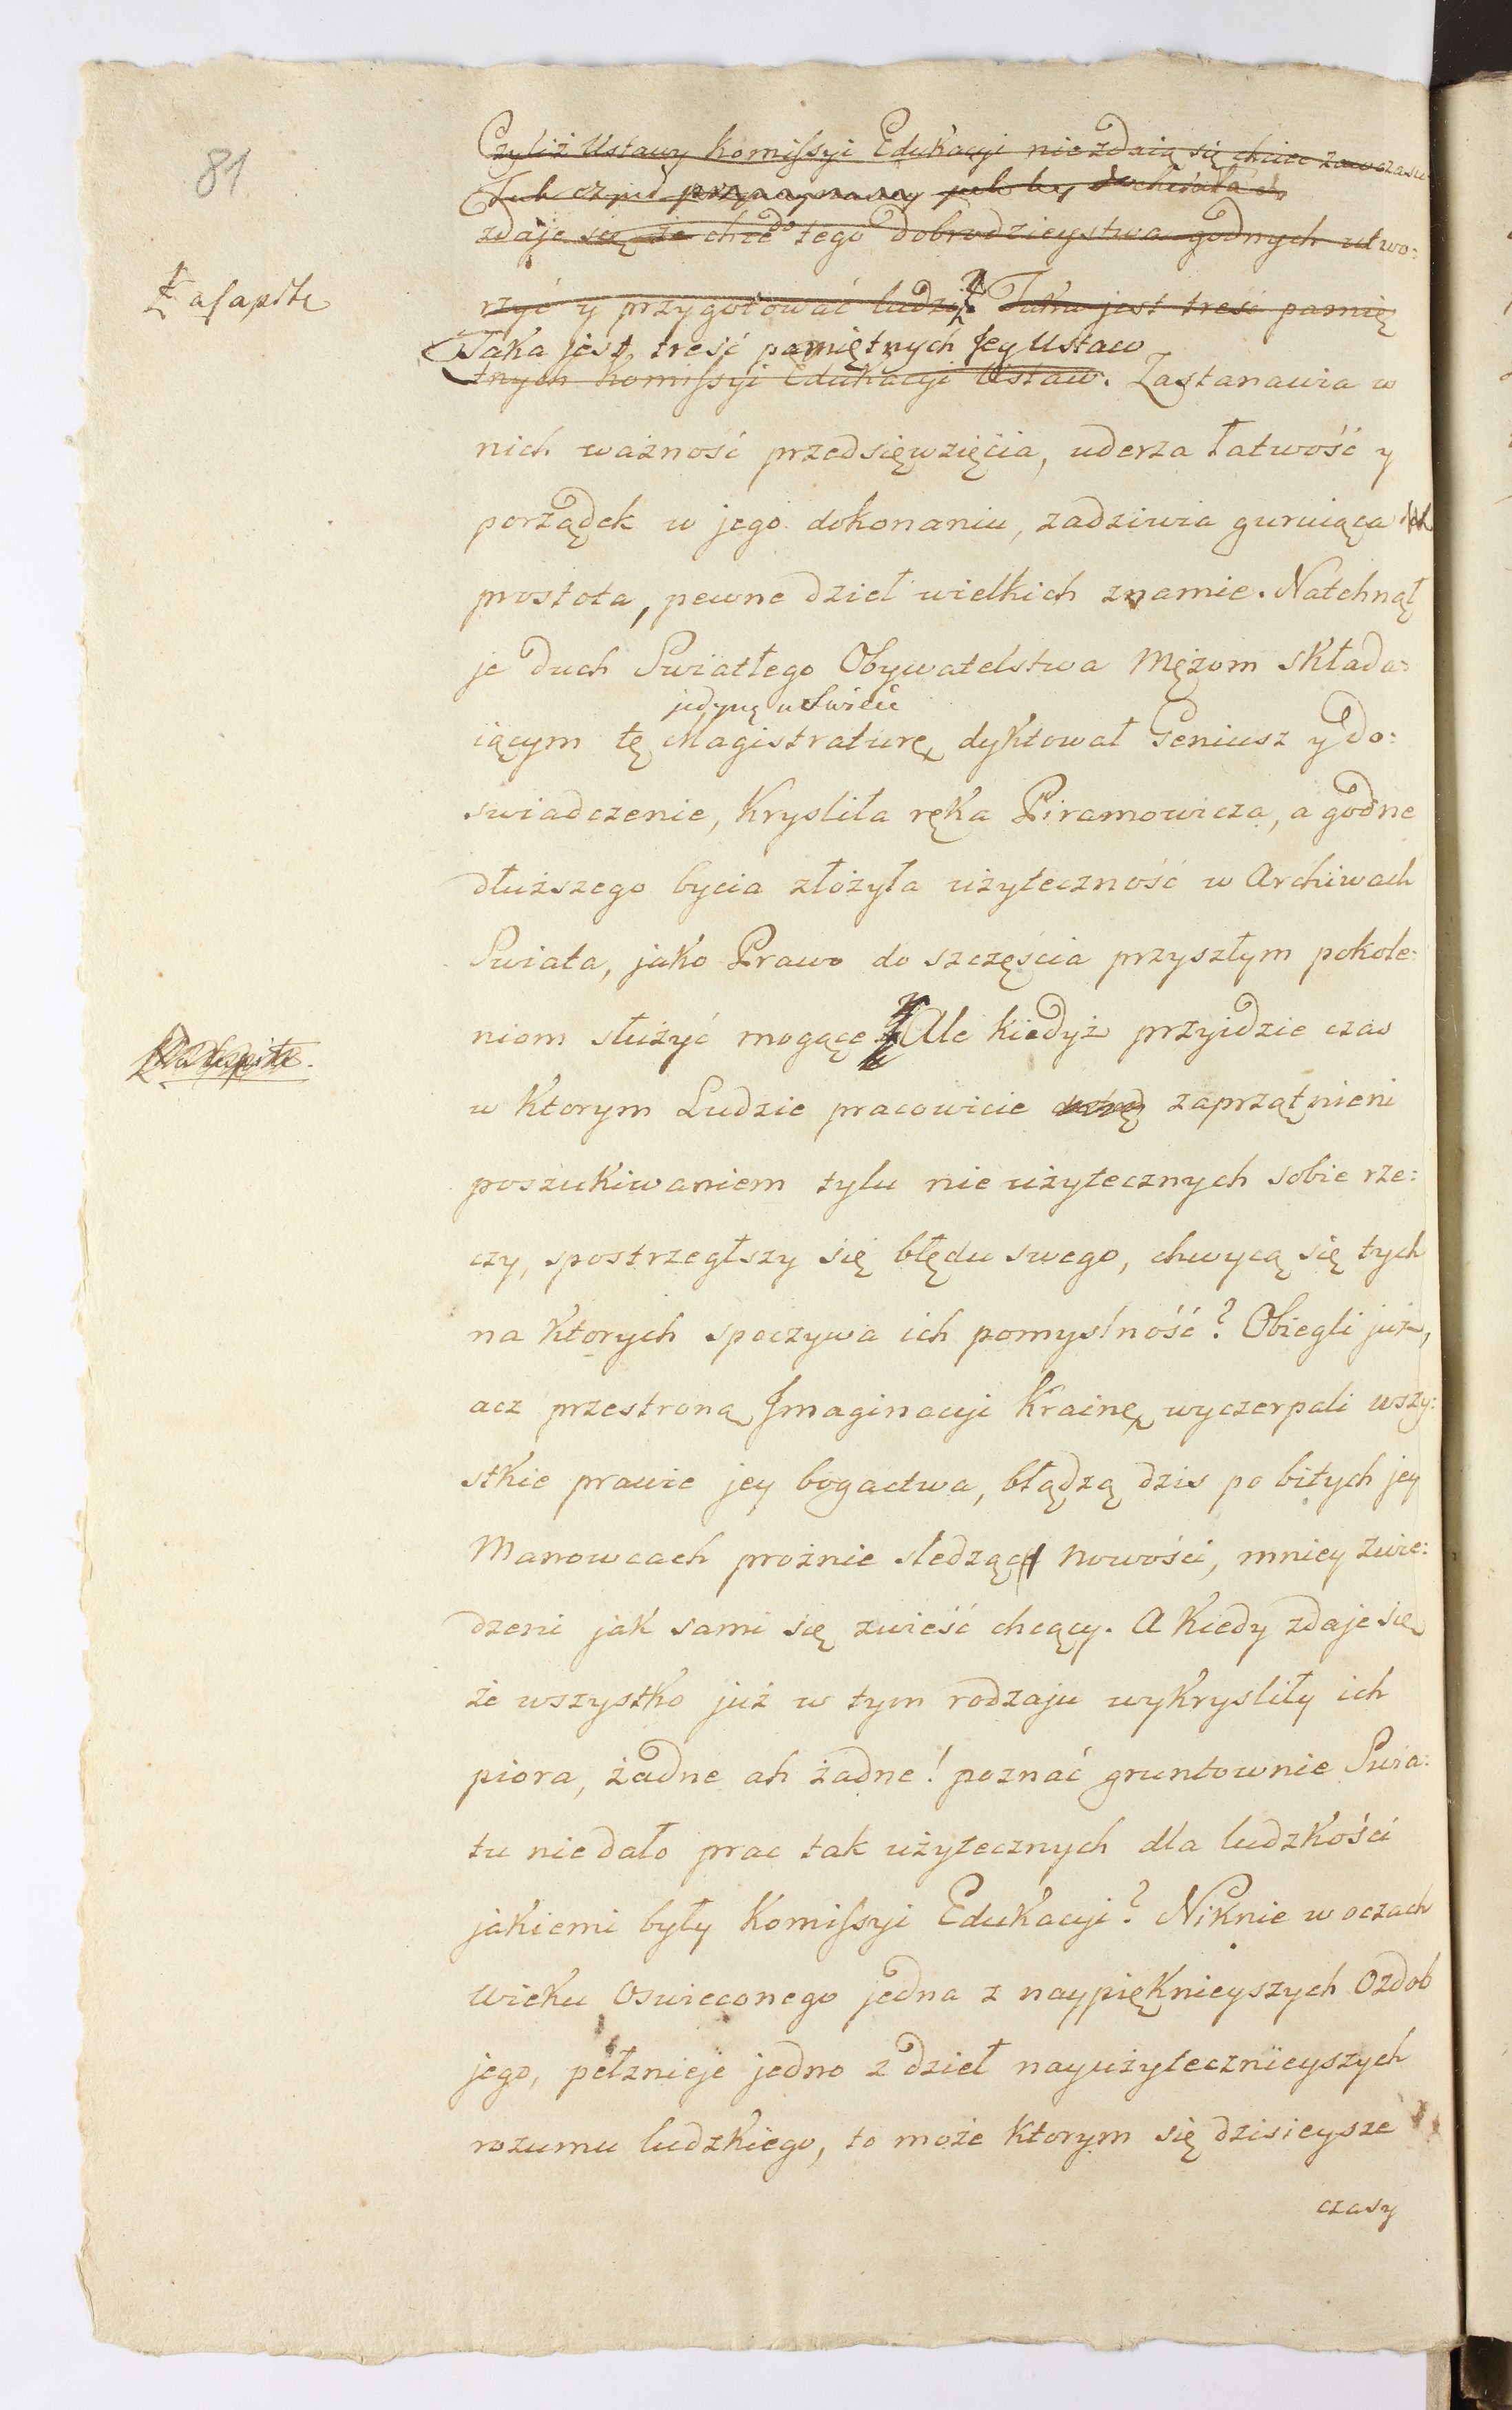 81
Czyliż Ustawy Komissyi Edukacyi niezdaią się chcieć zawczasu
zdaje się że chce tego dobrodzieystwa godnych utwo:
a Capite
rzyć y przygotować ludzi? Taka jest treść pamię
Taka jest treść pamiętnych Jey Ustaw
tnych Komissyi Edukacyi Ustaw. Zastanawia w
nich ważność przedsięwzięcia, uderza łatwość y
porządek w jego dokonaniu, zadziwia guruiąca ich
prostota, pewne dzieł wielkich znamie. Natchnął
je duch Swiatłego Obywatelstwa Mężom składa:
jedyną w Swiecie
iącym tę Magistraturę, dyktował Geniusz y do:
swiadczenie, Krysliła ręka Piramowicza, a godne
dłuższego bycia złożyła użyteczność w Archiwach
Swiata, jako Prawo do szczęścia przyszłym pokole:
niom służyć mogące. Ale kiedyż przyidzie czas
w ktorym Ludzie pracowicie zaprzątnieni
poszukiwaniem tylu nie użytecznych sobie rze:
czy, spostrzegłszy się błędu swego, chwycą się tych
na ktorych spoczywa ich pomyslność? Obiegli już,
acz przestroną Jmaginacyi Krainę, wyczerpali wszy:
stkie prawie jey bogactwa, błądzą dzis po bitych jey
Manowcach prożnie sledząc nowości, mniey zwie:
dzeni jak sami się zwieść chcący. A Kiedy zdaje się
że wszystko już w tym rodzaju wykrysliły ich
piora, żadne ah żadne! poznać gruntownie Swia:
tu niedało prac tak użytecznych dla ludzkości
jakiemi były Komissyi Edukacyi? Niknie w oczach
wieku oswieconego jedna z naypięknieyszych ozdob
jego, pełznieje jedno z dzieł nayużytecznieyszych
rozumu ludzkiego, to może ktorym się dzisieysze
czasy